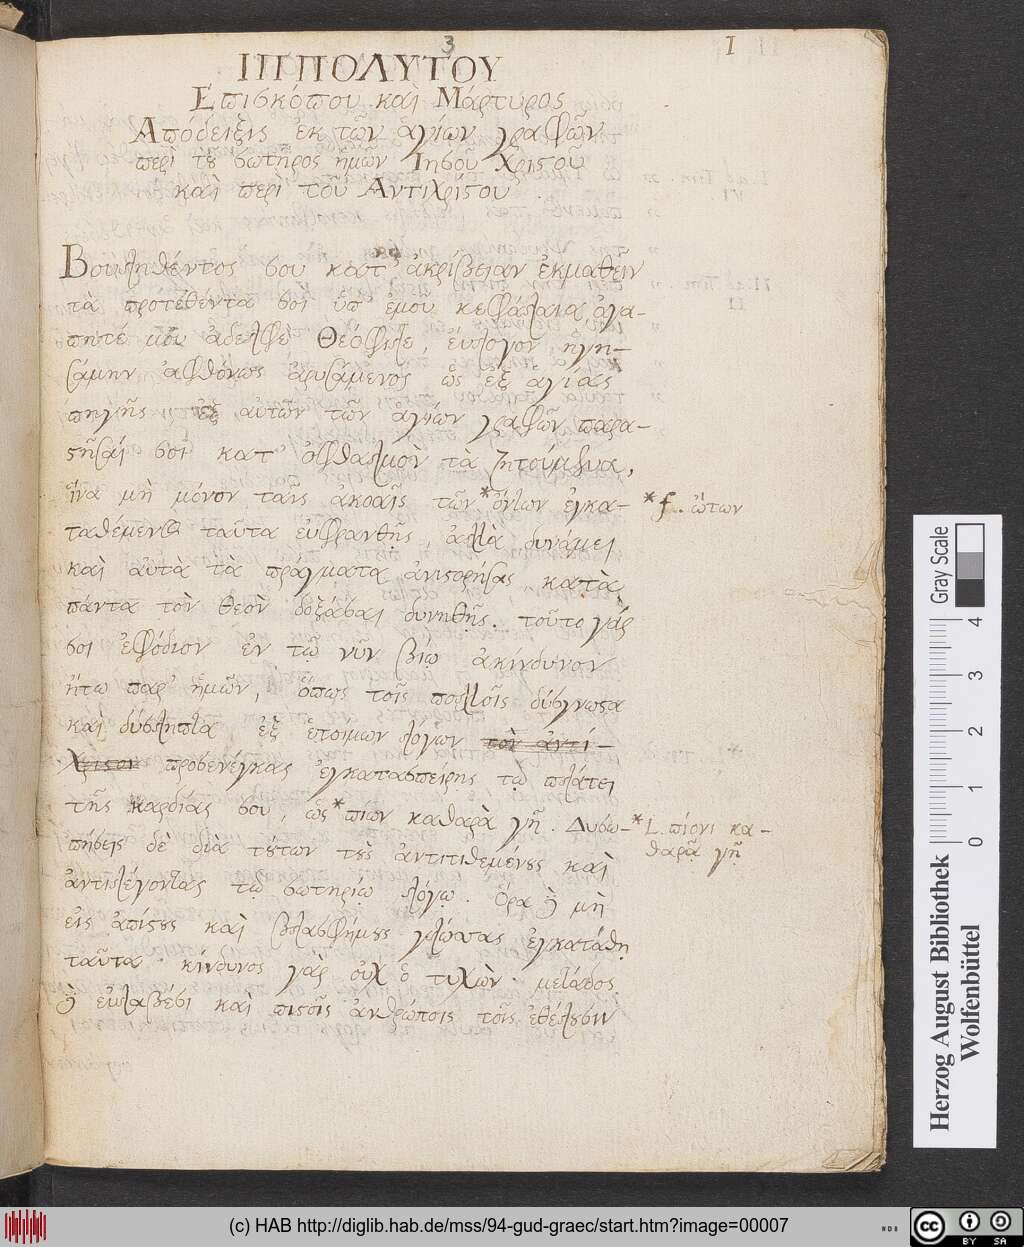 3
I
ΙΠΠΟΛΥΤΟΥ
Ἐπισκόπου καὶ Μάρτυρος
Ἀπόδειξις ἐκ τῶν ἁγίων γραφῶν
περὶ τȣ σωτῆρος ἡμῶν Ἰησοῦ Χριστοῦ
καὶ περὶ τοῦ Ἀντιχρίστου.
Βουληθέντος σου κατ' ἀκρίβειαν ἐκμαθεῖν
τὰ προτεθέντα σοι ὑπ' ἐμοῦ κεφάλαια ἀγα-
πητέ μου ἀδελφὲ Θεόφιλε, εὔλογον ἡγη-
σάμην ἀφθόνως ἀρυσάμενος ὡς ἐξ ἁγίας
πηγῆς ἐξ αὐτῶν τῶν ἁγίων γραφῶν παρα-
στῆσαί σοι κατ' ὀφθαλμὸν τὰ ζητούμενα,
ἵνα μὴ μόνον ταῖς ἀκοαῖς τῶν *ὄντων ἐγκα-
*f. ὤτων
ταθέμενος ταῦτα εὐφρανθῇς, ἀλλὰ δυνάμει
καὶ αὐτὰ τὰ πράγματα ἀνιστορήσας κατὰ
πάντα τὸν θεὸν δοξάσαι δυνηθῇς. τοῦτο γάρ
σοι ἐφόδιον ἐν τῷ νῦν βίῳ ἀκίνδυνον
ἤτω παρ' ἡμῶν, ὅπως τοῖς πολλοῖς δύσγνωστα
καὶ δύσληπτα ἐξ ἑτοίμων λόγων τὸν ἀντί-
χριστον προσενέγκας ἐγκατασπείρῃς τῷ πλάτει
τῆς καρδίας σου, ὡς *πιὼν καθαρὰ γῆ. Δυσω-
*L. πίονι κα-
θαρᾷ γῇ
πήσεις δὲ διὰ τȣτων τȣς ἀντιτιθεμένȣς καὶ
ἀντιλέγοντας τῷ σωτηρίῳ λόγῳ. Ὅρα δὲ μὴ
εἰς ἀπίστȣς καὶ βλασφήμȣς γλώσσας ἐγκατάθῃ
ταῦτα· κίνδυνος γὰρ οὐχ ὁ τυχὼν· μετάδος
δὲ εὐλαβέσι καὶ πιστοῖς ἀνθρώποις τοῖς ἐθέλȣσιν
Gray Scale
0 1 2 3 4
Herzog August Bibliothek
Wolfenbüttel
(c) HAB http://diglib.hab.de/mss/94-gud-graec/start.htm?image=00007
WDB
cc BY SA